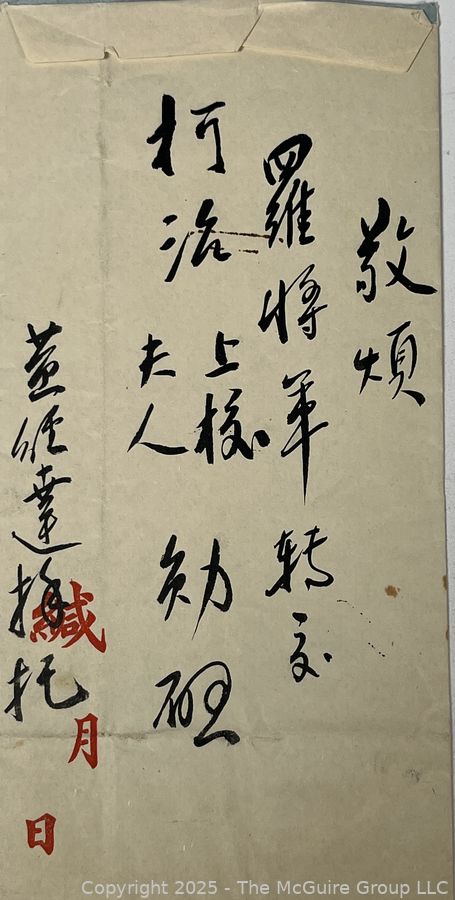 敬煩
羅將軍轉交
柯洛上校
夫人
勛啟
黃 達拜托
緘
月
日
Copyright 2025 - The McGuire Group LLC